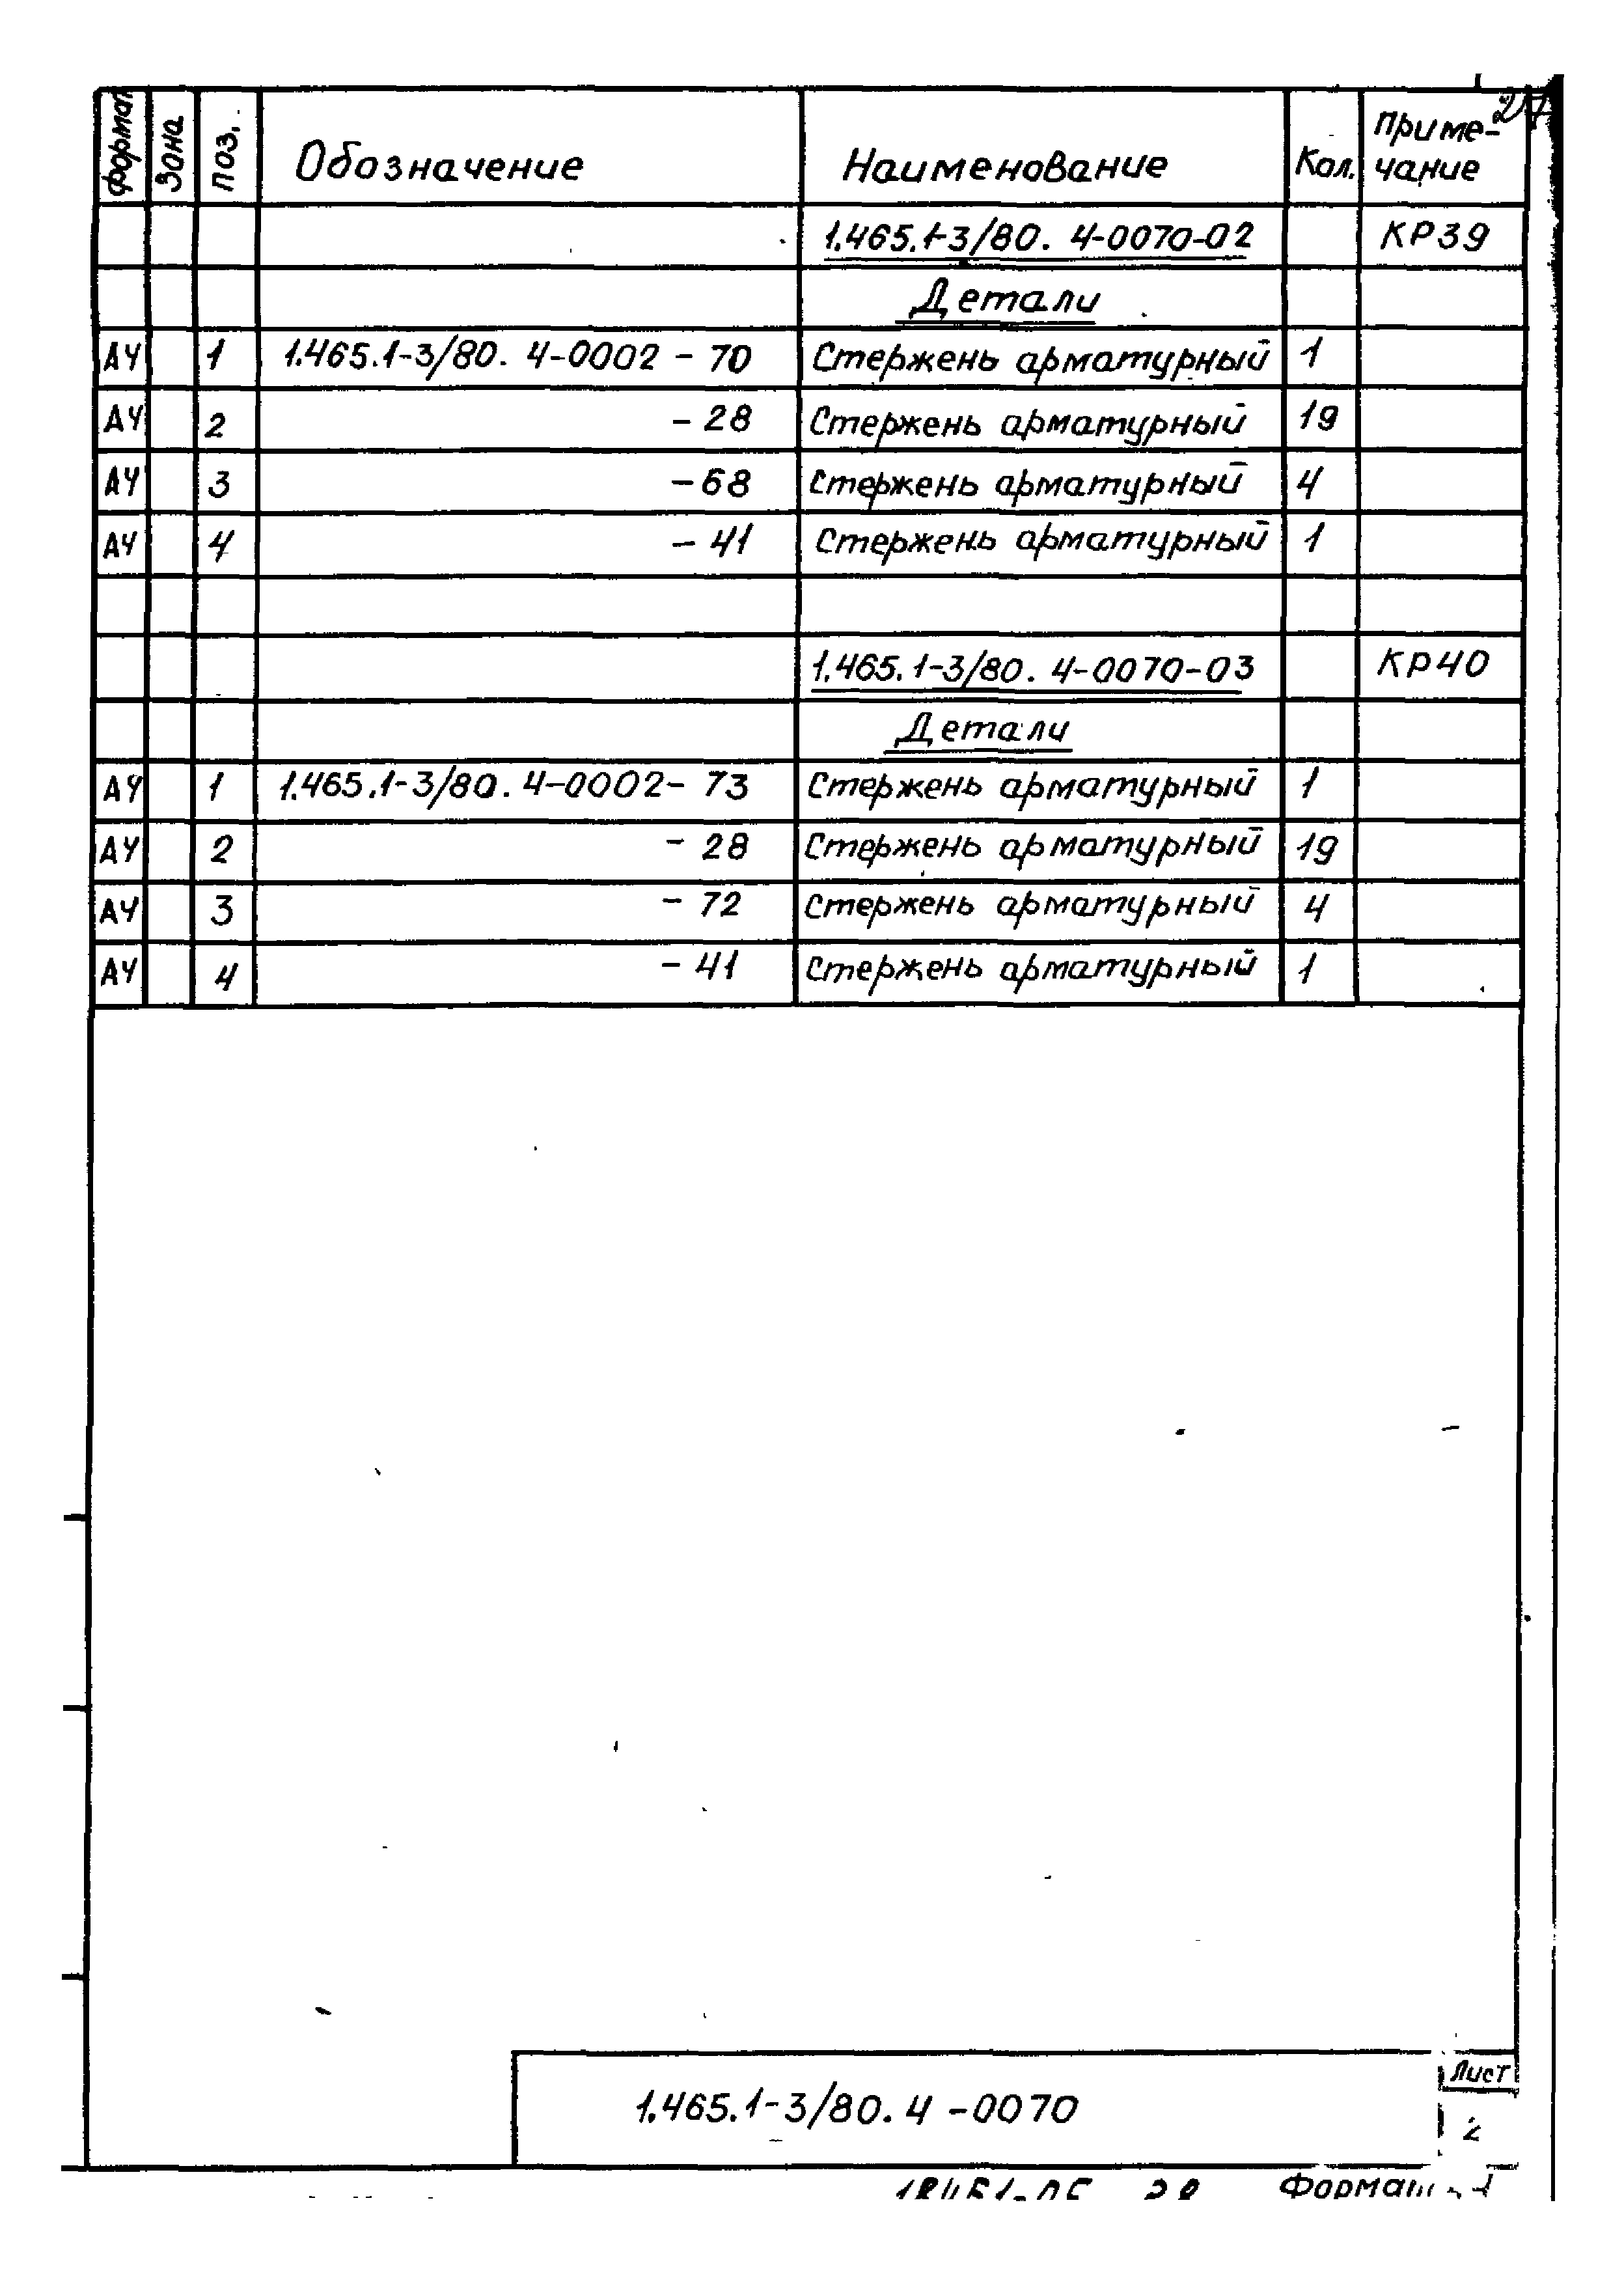 27
Формат Зона Поз. Обозначение Наименование Кол. Приме-
чание
1.465.1-3/80. 4-0070-02 КР39
Детали
А4 1 1.465.1-3/80. 4-0002 - 70 Стержень арматурный 1
А4 2 - 28 Стержень арматурный 19
А4 3 - 68 Стержень арматурный 4
А4 4 - 41 Стержень арматурный 1
1.465.1-3/80. 4-0070-03 КР40
Детали
А4 1 1.465.1-3/80. 4-0002- 73 Стержень арматурный 1
А4 2 - 28 Стержень арматурный 19
А4 3 - 72 Стержень арматурный 4
А4 4 - 41 Стержень арматурный 1
Лист
1.465.1-3/80. 4 -0070
2
Формат